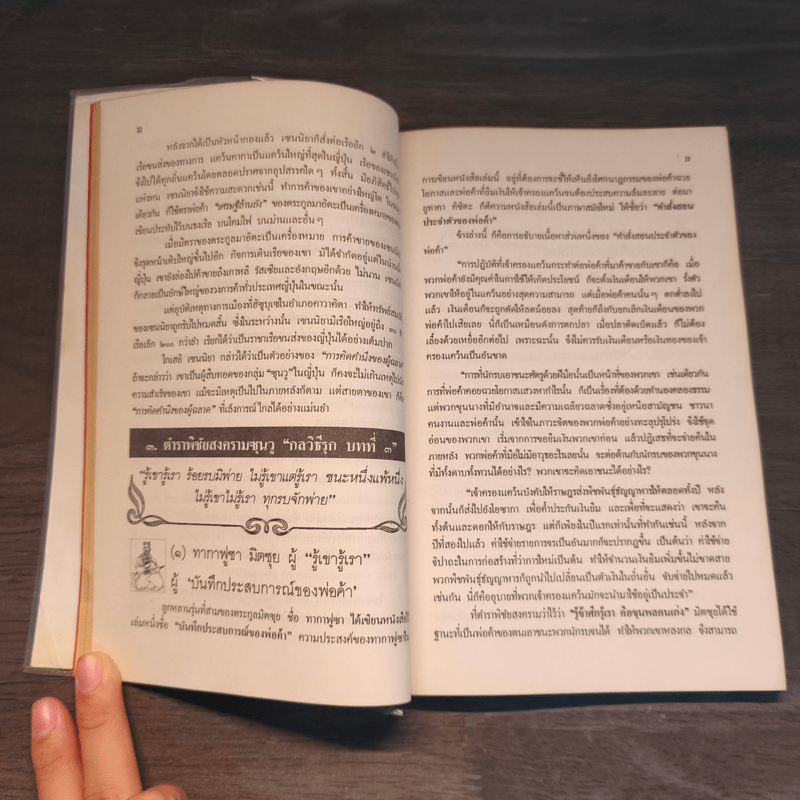 หลังจากได้เป็นหัวหน้ากองแล้ว เซนนิยาก็สั่งต่อเรืออีก ๒
เรือขนส่งของทางการ แคว้นคากาเป็นแคว้นใหญ่ที่สุดในญี่ปุ่น เรือของเซนนิยา
จึงไปได้ทุกถิ่นแคว้นโดยตลอดปราศจากอุปสรรคใดๆ ทั้งสิ้น มีอภิสิทธิ์
แห่งหน เซนนิยาจึงใช้ความสะดวกเช่นนี้ ทำการค้าของเขาอย่างใหญ่โต
เดียวกัน ก็ใช้ตราพ่อค้า “เศรษฐีล้านถัง” ของตระกูลมาอิตะเป็นเครื่องหมาย
เขียนประทับไว้บนธงเรือ บนโคมไฟ บนม่านและอื่นๆ
เมื่อมีตราของตระกูลมาอิตะเป็นเครื่องหมาย การค้าขายของเซนนิยา
จึงรุดหน้าเติบใหญ่ขึ้นไปอีก กิจการเดินเรือของเขา มิได้จำกัดอยู่แต่ใน
ญี่ปุ่น เขายังล่องไปค้าขายถึงเกาหลี รัสเซียและอังกฤษอีกด้วย ไม่นาน
ก็กลายเป็นยักษ์ใหญ่ของวงการค้าทั่วประเทศญี่ปุ่นในขณะนั้น
แต่อุบัติเหตุทางการเมืองที่ฮิซุบุเซในอำเภอคาวาคิตา ทำให้ทรัพย์สมบัติ
ของเซนนิยาถูกริบไปหมดสิ้น ซึ่งในระหว่างนั้น เซนนิยามีเรือใหญ่อยู่ถึง ๓๐
เรือเล็ก ๒๐๐ กว่าลำ เรียกได้ว่าเป็นราชาเรือขนส่งของญี่ปุ่นได้อย่างเต็มปาก
โกเฮอิ เซนนิยา กล่าวได้ว่าเป็นตัวอย่างของ “การคิดคำนึงของผู้ฉลาด”
ถ้าจะกล่าวว่า เขาเป็นผู้สืบทอดของกลุ่ม “ซุนวู” ในญี่ปุ่น ก็คงจะไม่เกินเหตุไป
ความสำเร็จของเขา แม้จะมีเหตุเป็นไปในภายหลังก็ตาม แต่สายตาของเขา
“การคิดคำนึงของผู้ฉลาด” ที่เล็งการณ์ไกลได้อย่างแม่นยำ
๓. ตำราพิชัยสงครามซุนวู “กลวิธีรุก บทที่ ๓”
“รู้เขารู้เรา ร้อยรบมิพ่าย ไม่รู้เขาแต่รู้เรา ชนะหนึ่งแพ้หนึ่ง
ไม่รู้เขาไม่รู้เรา ทุกรบจักพ่าย”
(๑) ทากาฟูซา มิตซุย ผู้ “รู้เขารู้เรา”
ผู้ ‘บันทึกประสบการณ์ของพ่อค้า’
ลูกหลานรุ่นที่สามของตระกูลมิตซุย ชื่อ ทากาฟูซา ได้เขียนหนังสือ
เล่มหนึ่งชื่อ “บันทึกประสบการณ์ของพ่อค้า” ความประสงค์ของทากาฟูซา
การเขียนหนังสือเล่มนี้ อยู่ที่ต้องการจะชี้ให้เห็นถึงโศกนาฏกรรมของพ่อค้าฉวย
โอกาสและพ่อค้าที่ยืมเงินให้เจ้าครองแคว้นจนต้องประสบความล้มละลาย ต่อมา
ยูทากา คิซึตะ ก็ตีความหนังสือเล่มนี้เป็นภาษาสมัยใหม่ ให้ชื่อว่า “คำสั่งสอน
ประจำตัวของพ่อค้า”
ข้างล่างนี้ ก็คือการอธิบายเนื้อหาส่วนหนึ่งของ “คำสั่งสอนประจำตัวของ
พ่อค้า”
“การปฏิบัติที่เจ้าครองแคว้นกระทำต่อพ่อค้าที่มาค้าขายกับเขาก็คือ เมื่อ
พวกพ่อค้ายังมีคุณค่าในการใช้ให้เกิดประโยชน์ ก็จะตั้งเงินเดือนให้พวกเขา รั้งตัว
พวกเขาให้อยู่ในแคว้นอย่างสุดความสามารถ แต่เมื่อพ่อค้าคนนั้นๆ ตกต่ำลงไป
แล้ว เงินเดือนก็จะถูกตัดให้ลดน้อยลง สุดท้ายก็ถึงกับยกเลิกเงินเดือนของพวก
พ่อค้าไปเสียเลย นี่ก็เป็นเหมือนดังการตกปลา เมื่อปลาติดเบ็ดแล้ว ก็ไม่ต้อง
เลี้ยงด้วยเหยื่ออีกต่อไป เพราะฉะนั้น จึงไม่ควรรับเงินเดือนหรือเงินทองของเจ้า
ครองแคว้นเป็นอันขาด
“การที่นักรบเอาชนะศัตรูด้วยฝีมือนั้นเป็นหน้าที่ของพวกเขา เช่นเดียวกับ
การที่พ่อค้าคอยฉวยโอกาสแสวงหากำไรนั้น ก็เป็นเรื่องที่ต้องด้วยทำนองคลองธรรม
แต่พวกขุนนางที่มีอำนาจและมีความเฉลียวฉลาดซึ่งอยู่เหนือสามัญชน ชาวนา
คนงานและพ่อค้านั้น เข้าใจในภาวะจิตของพวกพ่อค้าอย่างทะลุปรุโปร่ง จึงใช้จุด
อ่อนของพวกเขา เริ่มจากการขอยืมเงินพวกเขาก่อน แล้วปฏิเสธที่จะจ่ายคืนใน
ภายหลัง พวกพ่อค้าที่มือไม่มีอาวุธอะไรเลยนั้น จะต่อต้านกับนักรบของพวกขุนนาง
ที่มีทั้งดาบทั้งทวนได้อย่างไร? พวกเขาจะคิดเอาชนะได้อย่างไร?
“เจ้าครองแคว้นบังคับให้ราษฎรส่งพืชพันธุ์ธัญญาหารให้ตลอดทั้งปี หลัง
จากนั้นก็ส่งไปยังโอซากา เพื่อค้ำประกันเงินยืม และเพื่อที่จะแสดงว่า เขาจะคืน
ทั้งต้นและดอกให้กับราษฎร แต่ก็เพียงในปีแรกเท่านั้นที่ทำกันเช่นนี้ หลังจาก
ปีที่สองไปแล้ว ค่าใช้จ่ายรายการจรเป็นอันมากก็จะปรากฏขึ้น เป็นต้นว่า ค่าใช้จ่าย
จิปาถะในการก่อสร้างที่ว่าการใหม่เป็นต้น ทำให้จำนวนเงินยืมเพิ่มขึ้นไม่ขาดสาย
พวกพืชพันธุ์ธัญญาหารก็ถูกนำไปเปลี่ยนเป็นตัวเงินในถิ่นอื่น จับจ่ายไปหมดแล้ว
เช่นกัน นี่ก็คืออุบายที่พวกเจ้าครองแคว้นมักจะนำมาใช้อยู่เป็นประจำ”
ที่ตำราพิชัยสงครามว่าไว้ว่า “รู้ข้าศึกรู้เรา คือขุนพลคนเก่ง” มิตซุยได้ใช้
ฐานะที่เป็นพ่อค้าของตนเอาชนะพวกนักรบจนได้ ทำให้พวกเขาหลงกล จึงสามารถ